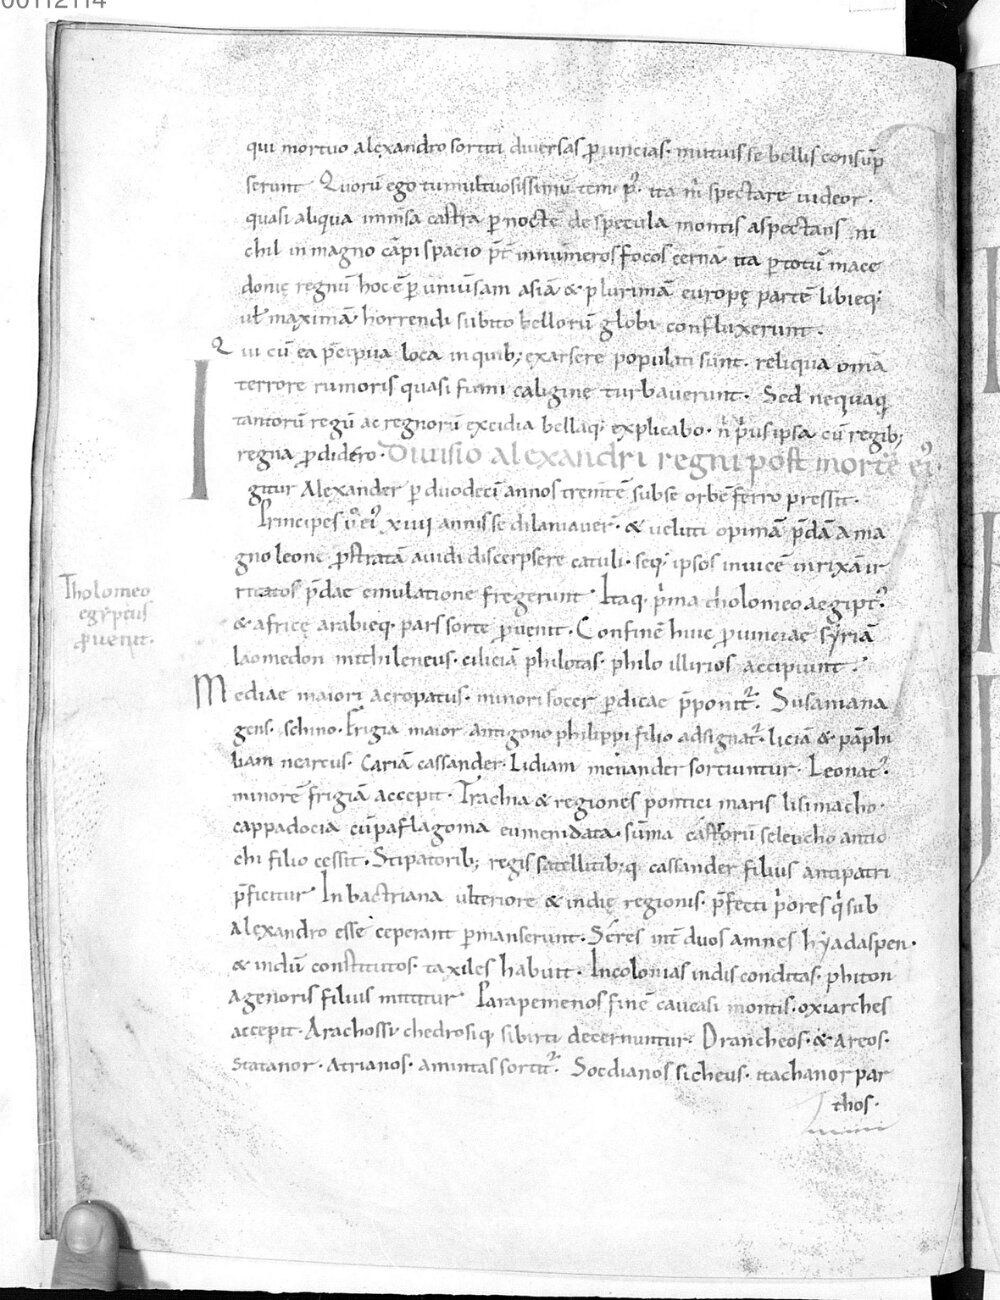 00112114
qui mortuo alexandro sortiti diuersas ꝓuincias· mutuis se bellis consūp
serunt· Quorū ego tumultuosissimū tem· ita m̄ spectare uideor·
quasi aliqua inm̄sa castra ꝑ nocte de specula montis aspectans ni
chil in magno cāpi spacio p̄t̄ innumeros focos cernā· ita ꝑ totū mace
donię regnū hoc ē ꝑ uniuersam asiā & plurimā europę partē libieq;
uł maximā horrendi subito bellorū globi confluxerunt·
Qui cū ea p̄cipua loca in quib; exarsere populati sunt· reliqua om̄a
terrore rumoris quasi fumi caligine turbauerunt· Sed nequaq̄
tantorū regū ac regnorū excidia bellaq; explicabo· n̄ p̓us ipsa cū regib;
regna ꝓdidero· Diuisio alexandri regni post mortē ei᾿
Igitur Alexander ꝑ duodecī annos trem̄tē sub se orbē ferro pressit·
Principes ū ei᾿ xiiii annis se dilaniauer̄· & ueluti opimā p̄dā a ma
gno leone ꝓstratā auidi discerpsere catuli· seq; ipsos inuicē in rixā ir
ritatos p̄dae emulatione fregerunt· Itaq; p̓ma tholomeo aegipt᾿
& africę arabieq; pars sorte ꝓuenit· Confinē huic ꝓuinciae syriā
laomedon mithileneus· ciliciā philotas· philo illirios accipiunt·
Mediae maiori acropatus· minori socer ꝑdicae p̄ponit᾿· Susaniana
gens· schino· Frigia maior antigono philippi filio adsignat᾿· liciā & pāphi
liam nearcus· Cariā cassander· Lidiam menander sortiuntur· Leonat᾿
minorē frigiā accepit· Trachia & regiones pontici maris lisimacho·
cappadocia cū paflagonia eumeni data· sūma castrorū seleucho antio
chi filio cessit· Stipatorib; regis satellitib;q; cassander filius antipatri
p̄ficitur In bactriana ulteriore & indię regionis· p̄fecti p̓ores q̓ sub
alexandro esse ceperant ꝑmanserunt· Seres int̄ duos amnes hyadaspen·
& indū constitutos· taxiles habuit· In colonias indis conditas· phiton
agenoris filius mittitur· Parapemenos finē caucasi montis· oxiarches
accepit· Arachossi chedrosiq; sibirti decernuntur· Drancheos· & Areos·
Statanor· Atrianos· amintas sortit᾿· Socdianos sicheus· itachanor par
thos·
Tholomeo
egyptus
ꝓuenit·